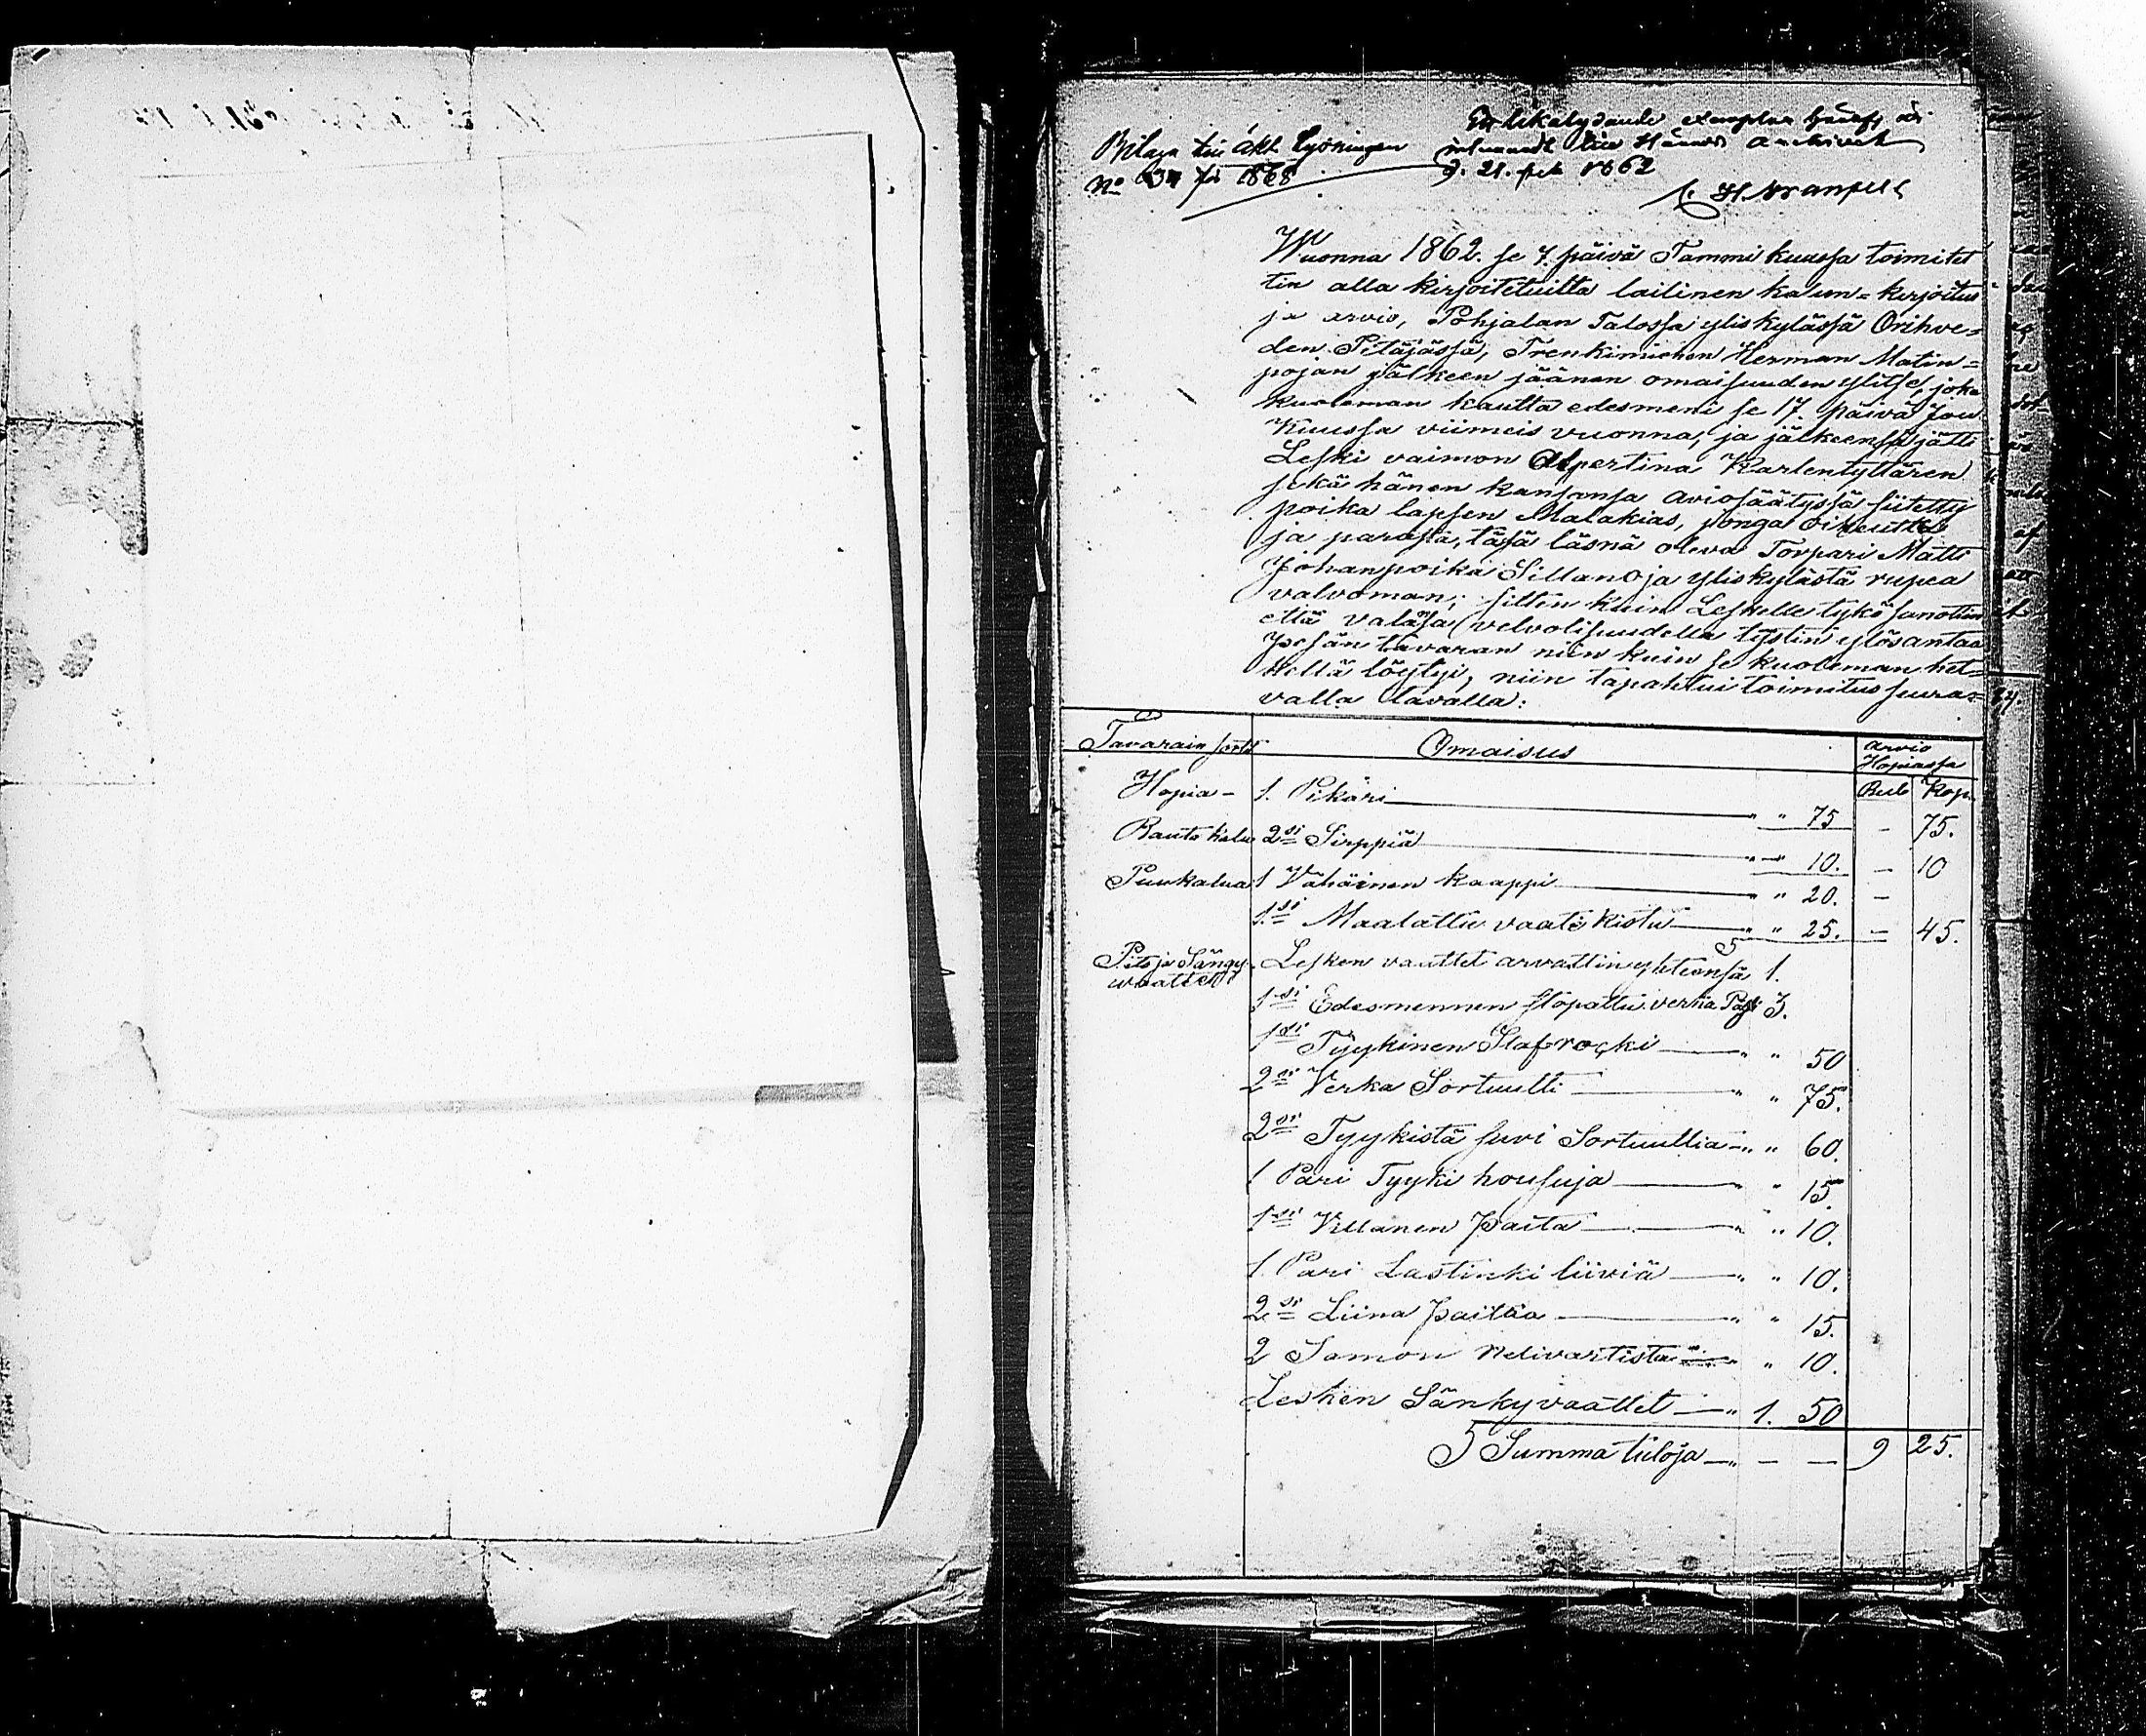 Ett likalydande exemplar häraf är
Bilaga till Akt Lysningen inlemnadt till Härads Archivet
No 34 för 1868 d. 21. feb 1862
Wuonna 1862. se 7. päivä Tammi kuussa toimitet
tin alla kirjoitetuilta lailinen kalun-kirjoitus
ja arvio, Pohjalan Talossa yliskylässä Orihve-
den Pitäjässä, Trenkimiehen Herman Matin-
pojan jälkeen jäänen omaisuuden ylitse, joka
kuoleman kautta edesmeni se 17. päivä Jou
Kuussa viimeis vuonna, ja jälkeensä jätti
Leski vaimon Alpertina Karlentyttären
sekä hänen kansansa aviosäätyssä siitetty
poika lapsen Malakias, jonga oikeutta
ja parasta, tässä läsnä oleva Torpari Matti
Johanpoika Sillanoja yliskylästä rupea
valvoman; sitten kuin Leskelle tykö sanottin
että valasa velvolisuudella tystin ylösantaa
pesän tavaran niin kuin se kuoleman het-
kellä löytyi, niin tapahtui toimitus seura-
valla tavalla:
Tavarain sortti Omaisus arvio Hopiassa
Rub Kop.
Hopia- 1. Pikari " " 75 - 75.
Rauta kalu 2si Sirppiä " " 10. - 10
Puukalua 1 Vähäinen kaappi " " 20. -
1.si Maalattu vaate kistu " " 25. - 45.
Pito ja Sängy waattet Lesken vaattet arvattin yhteensä 1.
1si Edesmennen slöpattu verka 3.
1si Tyykinen Slafrocki " " 50
2si Verka Sortuutti " " 75.
2si Tyykistä suvi Sortuuttia " " 60.
1 Pari Tyyki housuja " " 15
1si Villanen paita " " 10.
1. Pari Lastinki liiviä " " 10.
2si Liina paitaa " " 15.
2 Samon " " 10.
Lesken Sänkyvaattet " 1. 50
Summa tuloja " - - 9 25.